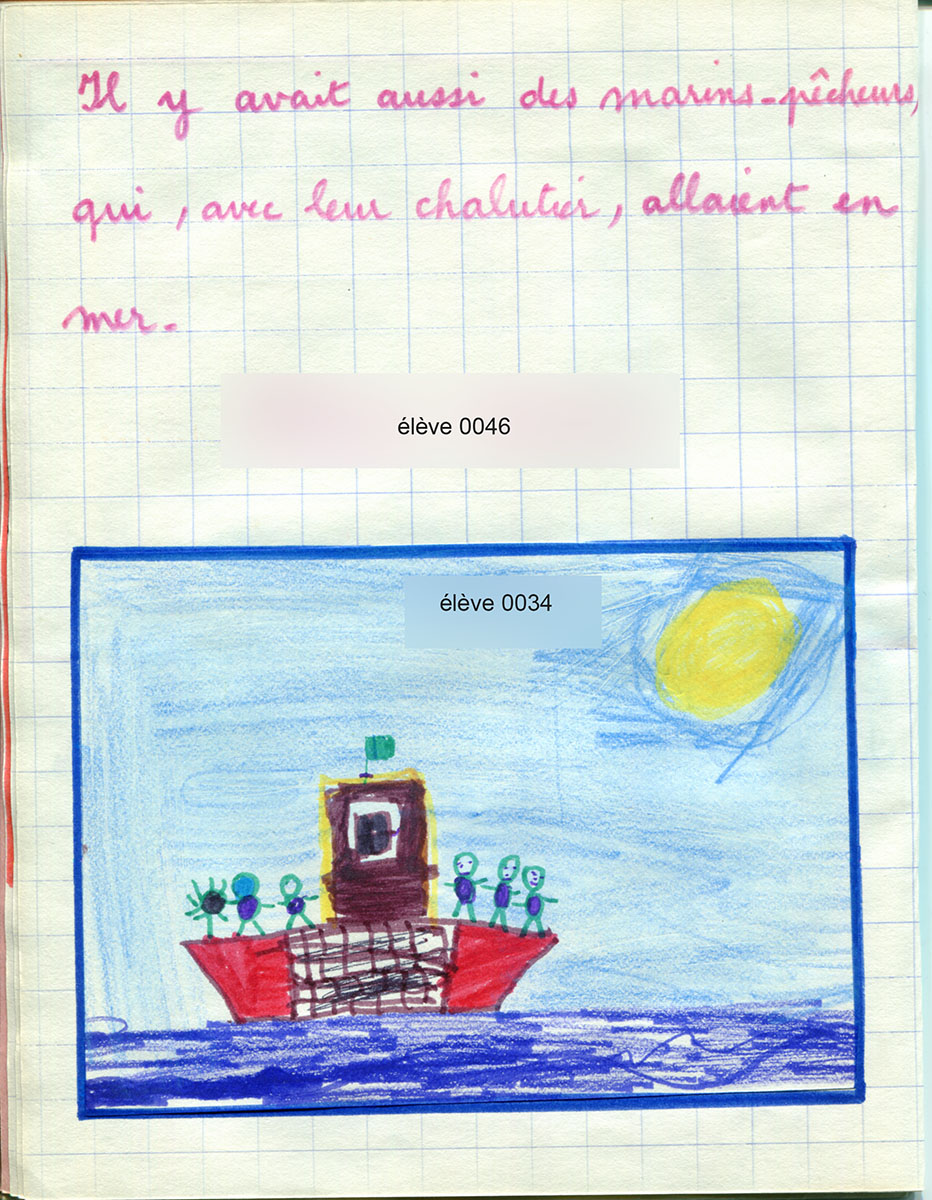 Il y avait aussi des marins-pêcheurs,
qui, avec leur chalutier, allaient en
mer.
élève 0046
élève 0034